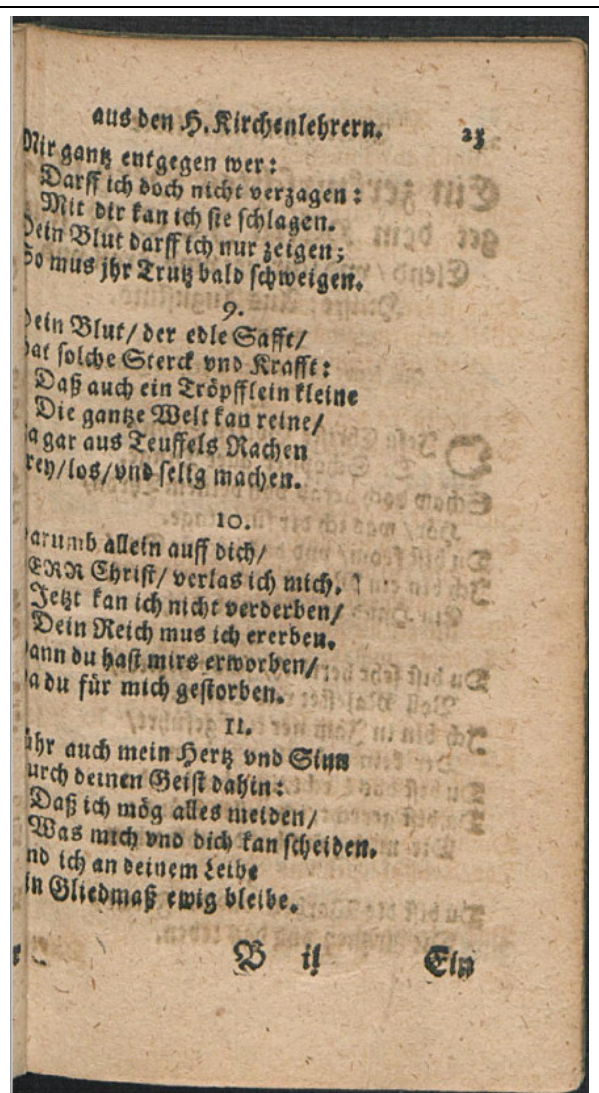 aus den H. Kirchenlehrern. 23
Mir gantz entgegen wer:
Darff ich doch nicht verzagen:
Mit dir kan ich sie schlagen.
Dein Blut darff ich nur zeigen;
So mus jhr Trutz bald schweigen.
9.
Dein Blut/ der edle Safft/
hat solche Sterck vnd Krafft:
Daß auch ein Tröpfflein kleine
Die gantze Welt kan reine/
Ja gar aus Teuffels Rachen
frey/los/vnd selig machen.
10.
arumb allein auff dich/
ERR Christ/ verlas ich mich.
Jetzt kan ich nicht verderben/
Dein Reich mus ich ererben.
ann du hast mirs erworben/
a du für mich gestorben.
11.
ühr auch mein Hertz vnd Sinn
urch deinen Geist dahin:
Daß ich mög alles meiden/
Was mich vnd dich kan scheiden.
nd ich an deinem Leibe
in Gliedmaß ewig bleibe.
B ij Ein